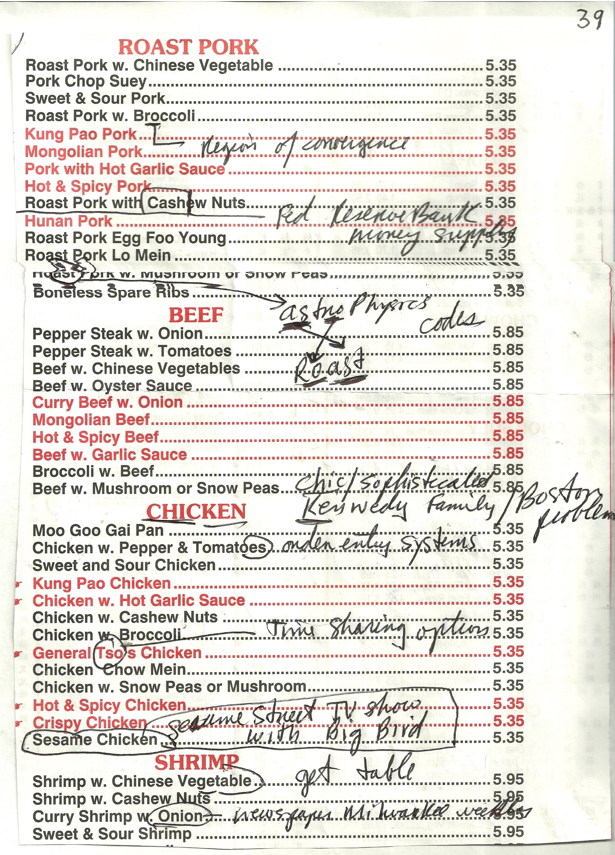 39
ROAST PORK
Roast Pork w. Chinese Vegetable 5.35
Pork Chop Suey 5.35
Sweet & Sour Pork 5.35
Roast Pork w. Broccoli 5.35
Kung Pao Pork 5.35
Region of convergence
Mongolian Pork 5.35
Pork with Hot Garlic Sauce 5.35
Hot & Spicy Pork 5.35
Roast Pork with Cashew Nuts 5.35
Fed Reserve Bank
Hunan Pork 5.35
money supply
Roast Pork Egg Foo Young 5.35
Roast Pork Lo Mein 5.35
Roast Pork w. Mushroom or Snow Peas 5.35
Boneless Spare Ribs 5.35
astro Physics
codes
BEEF
Pepper Steak w. Onion 5.85
Pepper Steak w. Tomatoes 5.85
Beef w. Chinese Vegetables 5.85
Roast
Beef w. Oyster Sauce 5.85
Curry Beef w. Onion 5.85
Mongolian Beef 5.85
Hot & Spicy Beef 5.85
Beef w. Garlic Sauce 5.85
Broccoli w. Beef 5.85
Beef w. Mushroom or Snow Peas 5.85
chic/sophisticated
Kennedy Family/Boston
problem
CHICKEN
Moo Goo Gai Pan 5.35
Chicken w. Pepper & Tomatoes 5.35
order entry systems
Sweet and Sour Chicken 5.35
Kung Pao Chicken 5.35
Chicken w. Hot Garlic Sauce 5.35
Chicken w. Cashew Nuts 5.35
Chicken w. Broccoli 5.35
Time Sharing option
General Tso's Chicken 5.35
Chicken Chow Mein 5.35
Chicken w. Snow Peas or Mushroom 5.35
Hot & Spicy Chicken 5.35
Crispy Chicken 5.35
Sesame Street TV show
with Big Bird
Sesame Chicken 5.35
SHRIMP
Shrimp w. Chinese Vegetable 5.95
get table
Shrimp w. Cashew Nuts 5.95
Curry Shrimp w. Onion 5.95
newspaper Milwaukee
Sweet & Sour Shrimp 5.95